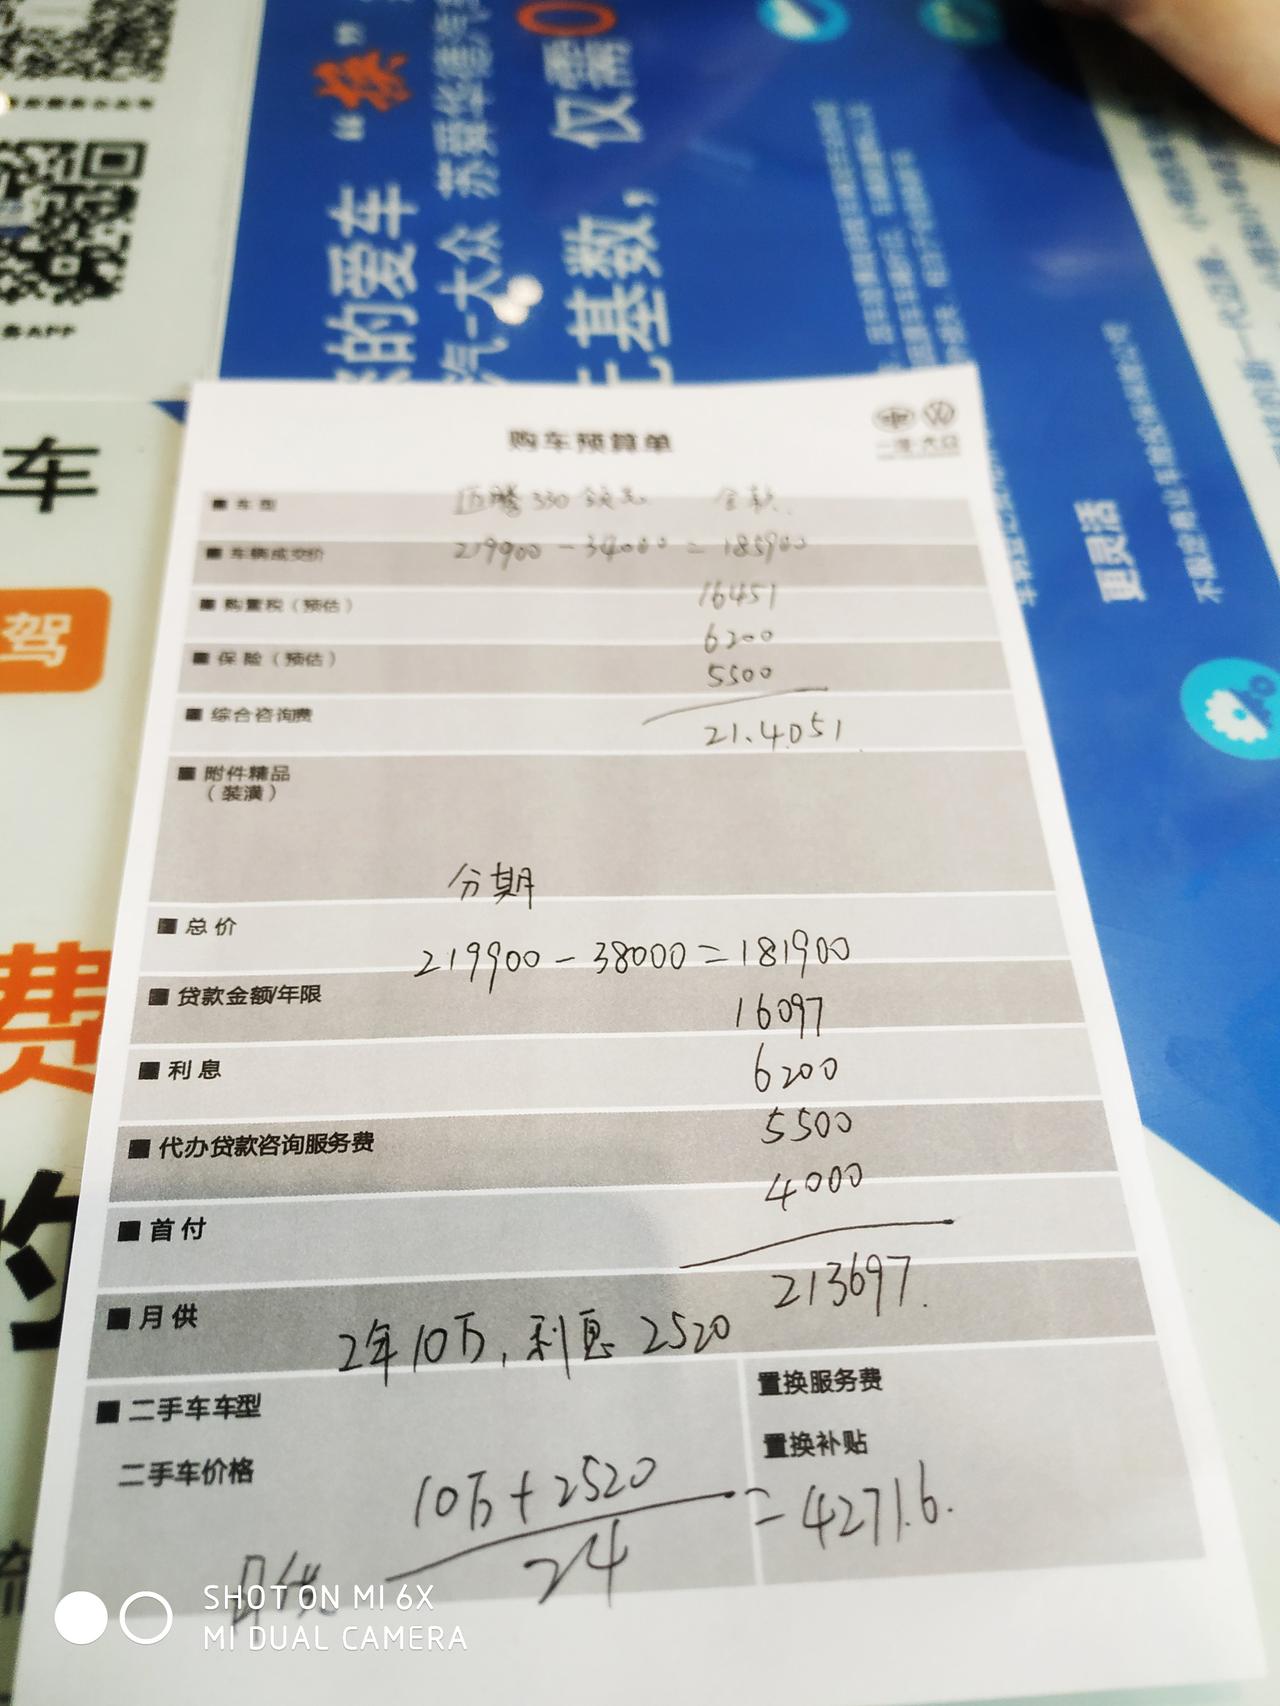 购车预算单
一汽-大众
■ 车型 迈腾 330 领先 全款
■ 车辆成交价 219900 - 34000 = 185900
■ 购置税（预估） 16451
6200
■ 保险（预估） 5500
■ 综合咨询费 21.4051
■ 附件精品
（装潢）
分期
■ 总价
219900 - 38000 = 181900
■ 贷款金额/年限 16097
■ 利息 6200
■ 代办贷款咨询服务费 5500
4000
■ 首付
213697.
■ 月供
2年10万, 利息 2520
■ 二手车车型
置换服务费
二手车价格
置换补贴
月供 10万 + 2520
24
= 4271.6.
SHOT ON MI 6X
MI DUAL CAMERA
的爱车 “焕”
汽-大众 苏舜华德汽
基数，仅需0
更灵活
车
驾
费
APP